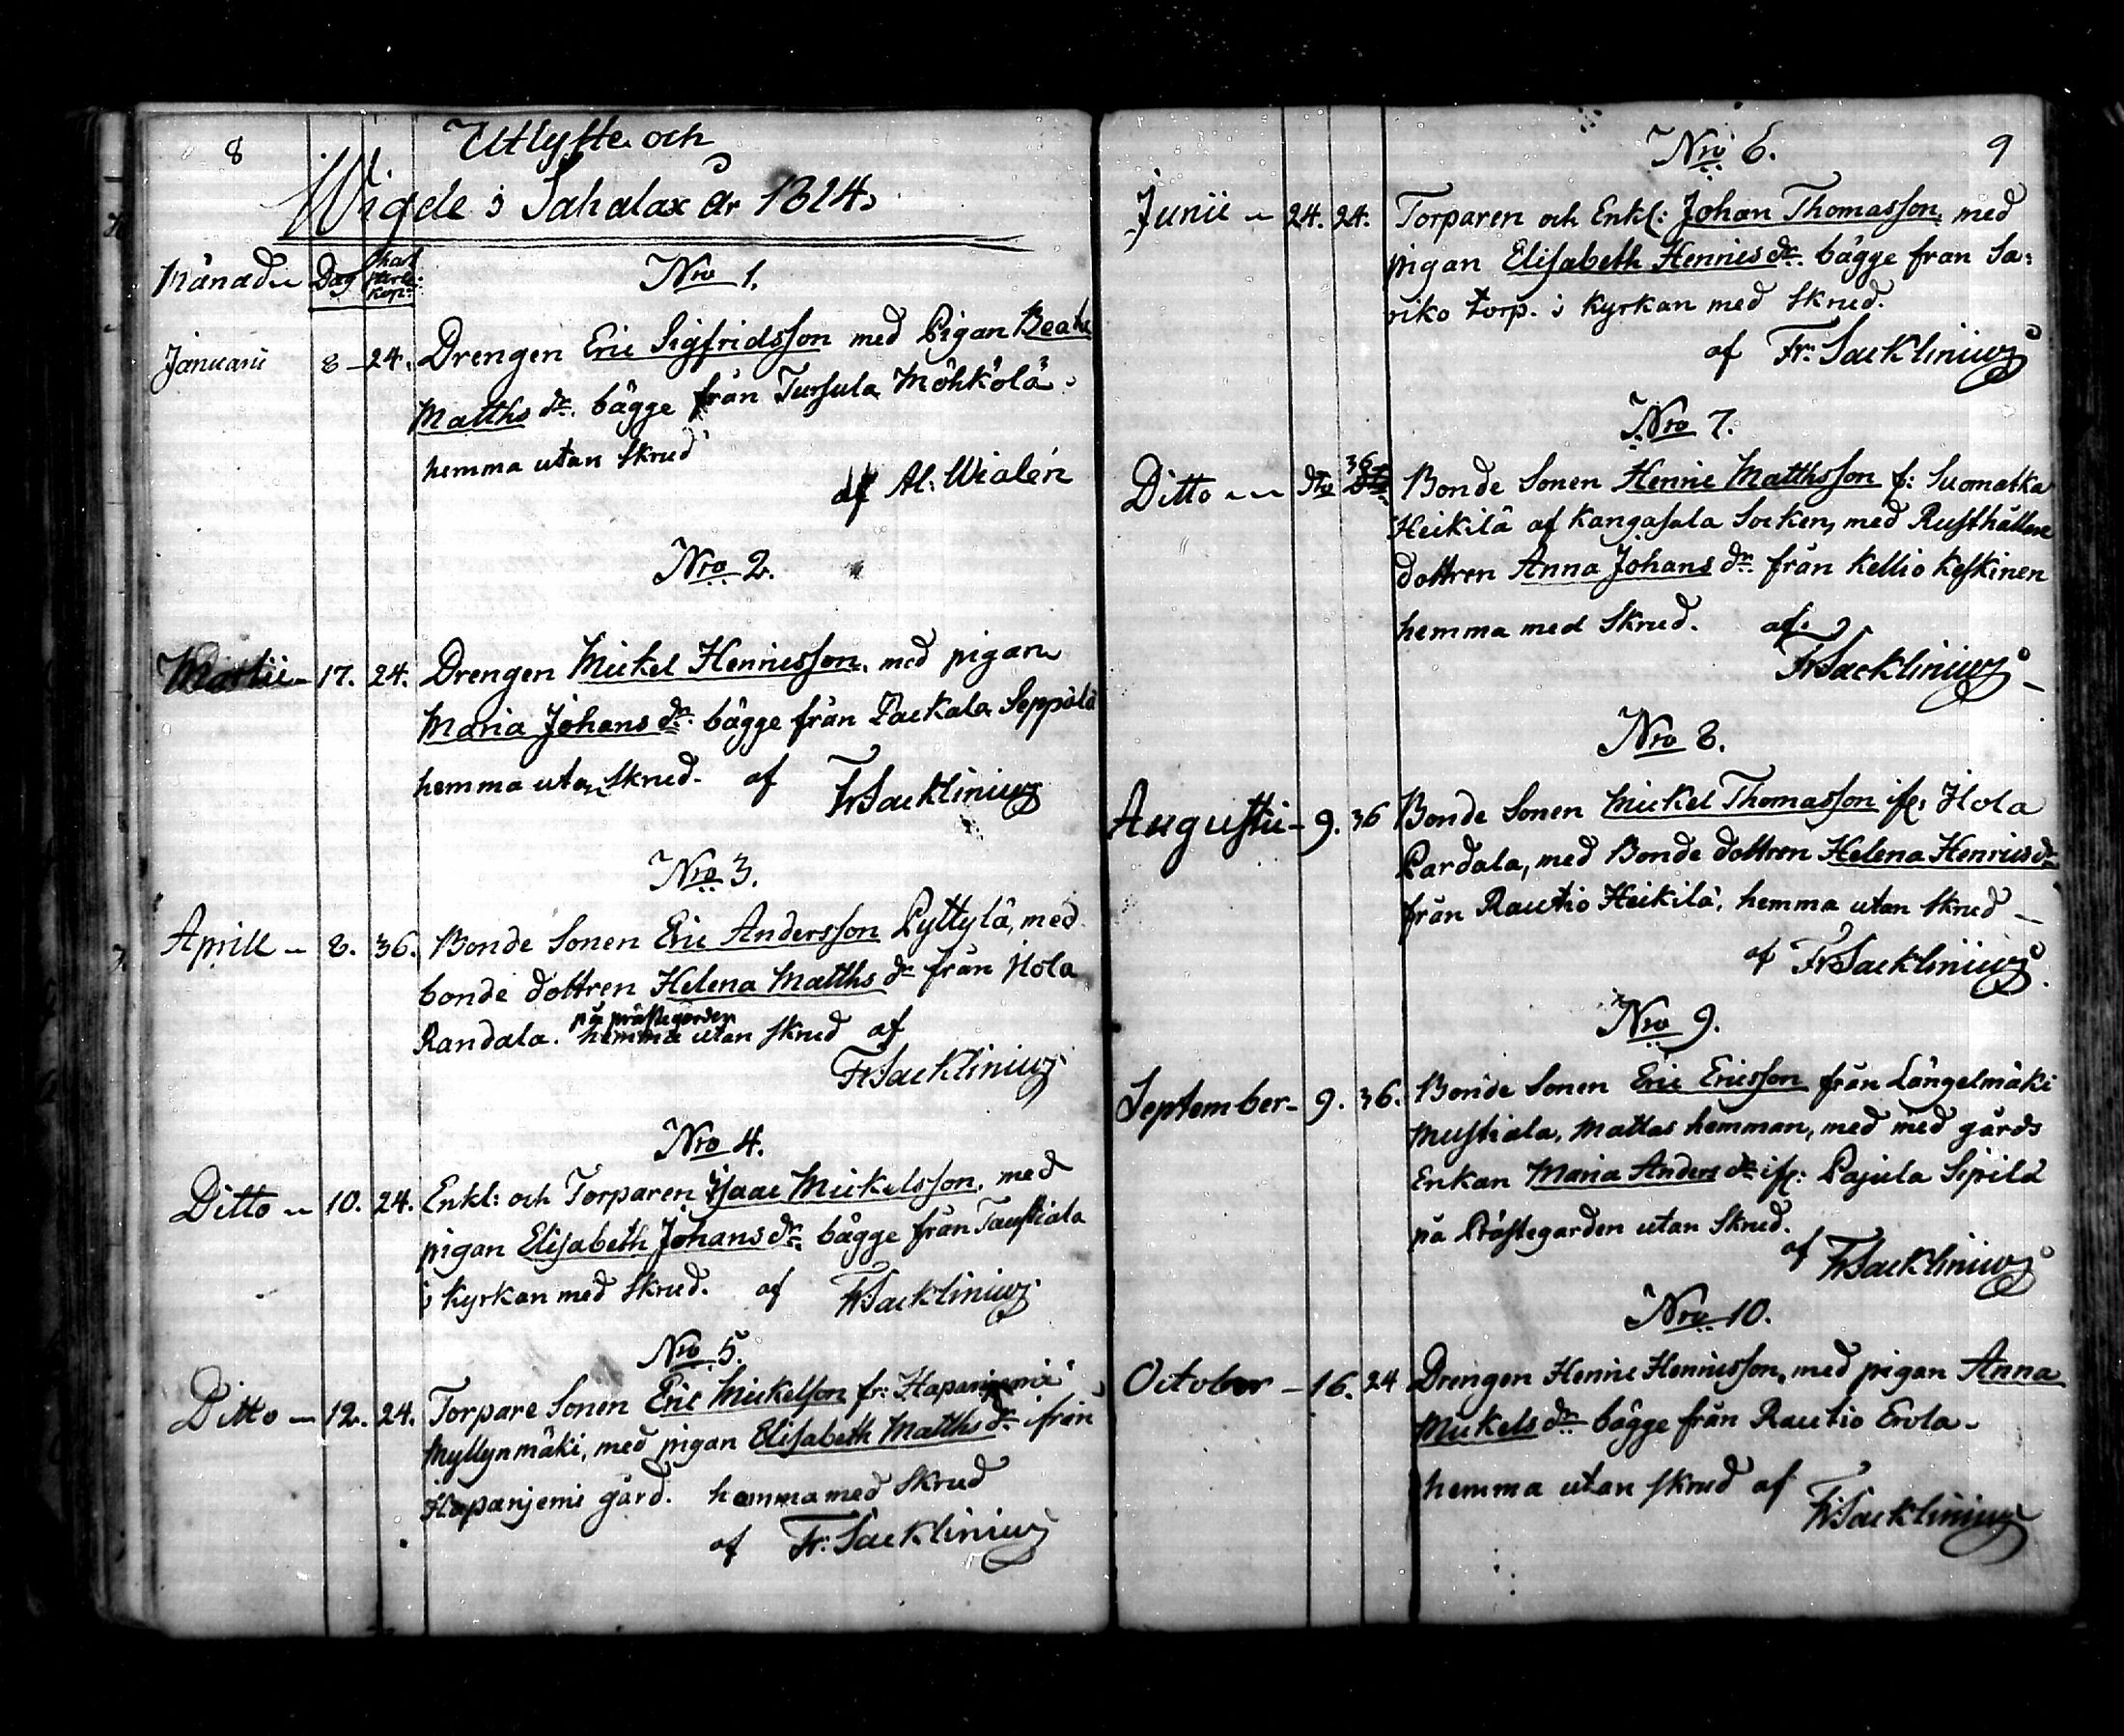 8
Utlyste och
Wigde i Sahalax år 1824.
Månad Dag
Nro 1.
Januarii 8 24. Drengen Eric Sigfridsson med Pigan Beata
Matths dr. bägge från Tursula Möhkölä
hemma utan skrud
af Al. Wialén
Nro 2.
Martii 17. 24. Drengen Mickel Henricsson, med pigan
Maria Johans dr. bägge från Packala Seppälä
hemma utan skrud. af FrSacklinius
Nro 3.
Aprill 8. 36. Bonde Sonen Eric Andersson Pyttylä, med
bonde dottren Helena Matths dr från Hola
på prästegården
Randala. hemma utan skrud af
FrSacklinius
Nro 4.
Ditto 10. 24. Enkl: och Torparen Isaac Mickelsson, med
pigan Elisabeth Johans dr. bägge från Taustiala
i kyrkan med skrud. af FrSacklinius
Nro 5.
Ditto 12. 24. Torpare Sonen Eric Mickelson fr: Hapaniemi
Myllynmäki, med pigan Elisabeth Matths dr från
Hapanjemi gård. hemma med skrud
af Fr: Sacklinius
9
Nro 6.
Junii 24. 24. Torparen och Enkl: Johan Thomasson, med
pigan Elisabeth Henrics dr. bägge från Sa:
viko torp. i kyrkan med skrud.
af Fr: Sacklinius
Nro 7.
36
Ditto dto Bonde Sonen Henric Matthsson f: Suomatka
Heikilä af Kangasala Socken, med Rusthållare
dottren Anna Johans dr. från Kellio Keskinen
hemma med skrud. af
FrSacklinius
Nro 8.
Augusti 9. 36 Bonde Sonen Mickel Thomasson ifr: Hola
Pardala, med Bonde dottren Helena Henrics dr
från Rautio Heikilä, hemma utan skrud
af FrSacklinius
Nro 9.
September 9. 36. Bonde Sonen Eric Ericsson från Längelmäki
Mustiala, Mattas hemman, med med gårds
Enkan Maria Anders dr ifr: Pajula Sipilä
på Prästegården utan skrud.
af FrSacklinius
Nro 10.
October 16. 24 Drengen Henric Henricsson, med pigan Anna
Mickels dr bägge från Rautio Erola
hemma utan skrud af FrSacklinius